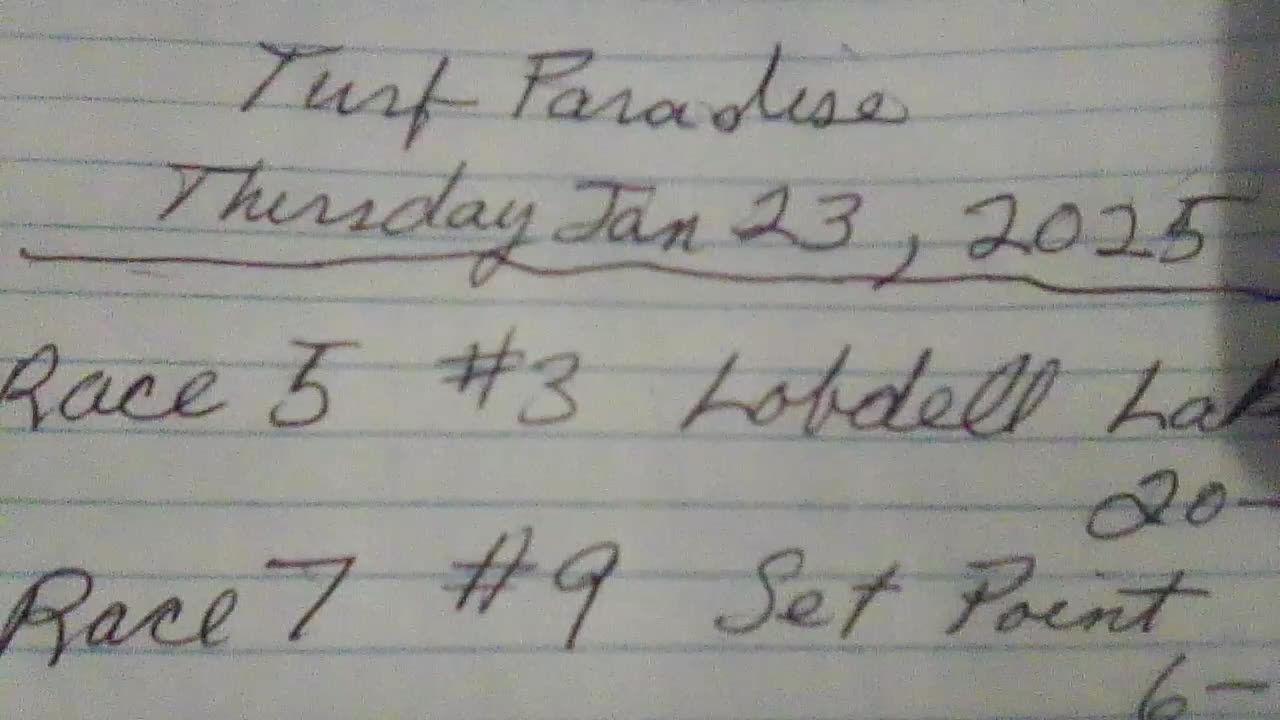 Turf Paradise
Thursday Jan 23, 2025
Race 5 #3 Lobdell Lak
20-
Race 7 #9 Set Point
6-